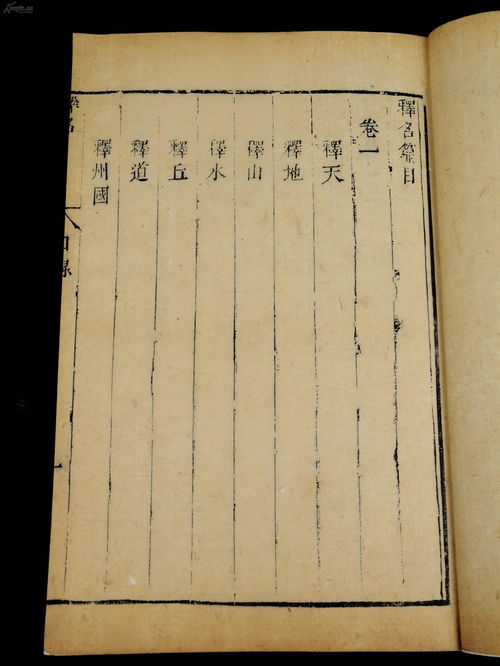 釋名篇目
卷一
釋天
釋地
釋山
釋水
釋丘
釋道
釋州國
釋名
目錄
一